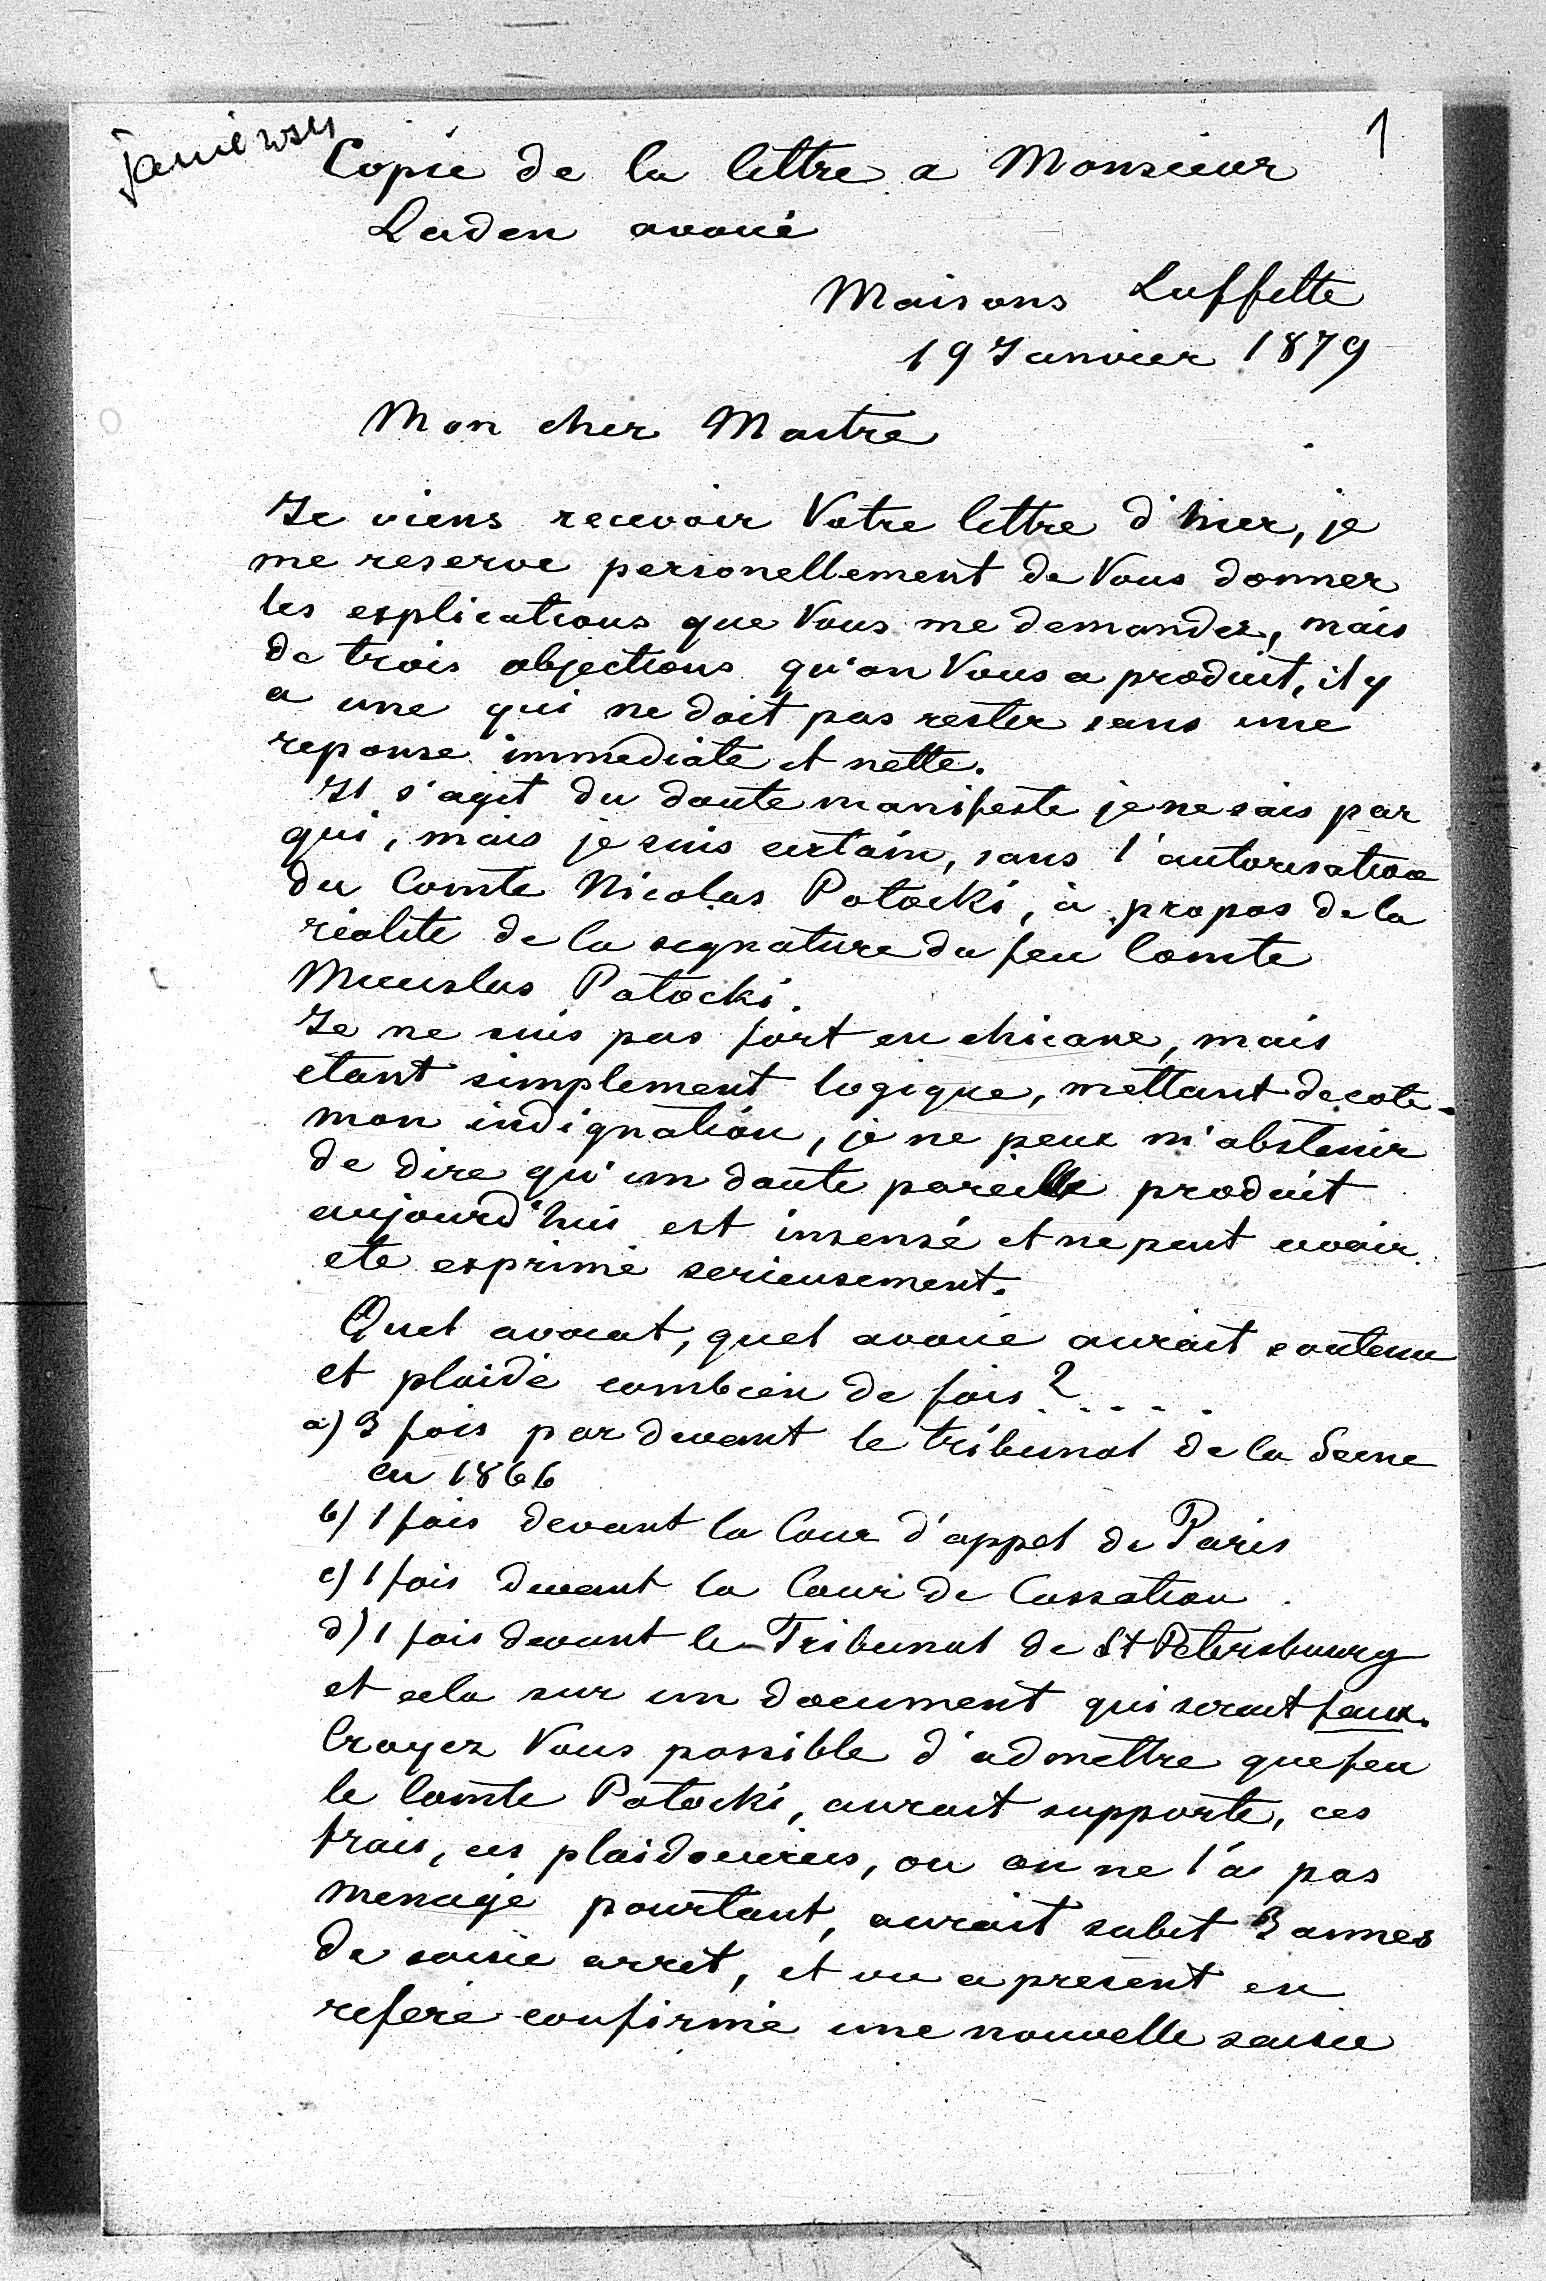 1
Copie de la lettre a Monsieur
Laden avoué
Maisons Laffitte
19 Janvier 1879
Mon cher Maitre
Je viens recevoir Votre lettre d'hier, je
me reserve personellement de Vous donner
les explications que Vous me demandez, mais
de trois objections qu'on Vous a produit, il y
a une qui ne doit pas rester sans une
reponse immediate et nette.
Il s'agit du doute manifeste je ne sais par
qui, mais je suis certain, sans l'autorisation
du Comte Nicolas Potocki, à propos de la
réalité de la signature du feu Comte
Mieczslas Potocki.
Je ne suis pas fort en chicane, mais
etant simplement logique, mettant de cote
mon indignation, je ne peux m'abstenir
de dire qu'un doute pareille produit
aujourd'hui est insensé et ne peut avoir
ete exprimé serieusement.
Quel avocat, quel avoué aurait soutenu
et plaidé combien de fois? . . . . .
a) 3 fois par devant le tribunal de la Seine
en 1866
b) 1 fois devant la Cour d'appel de Paris
c) 1 fois devant la Cour de Cassation.
d) 1 fois devant le Tribunal de St Petersbourg
et cela sur un document qui serait faux.
Croyez Vous possible d'admettre que feu
le Comte Potocki, aurait supporte, ces
frais, ces plaidoueries, ou on ne l'a pas
menagé pourtant, aurait subit 3 annes
de saisie arrêt, et vu a present en
referé confirmé une nouvelle saisie